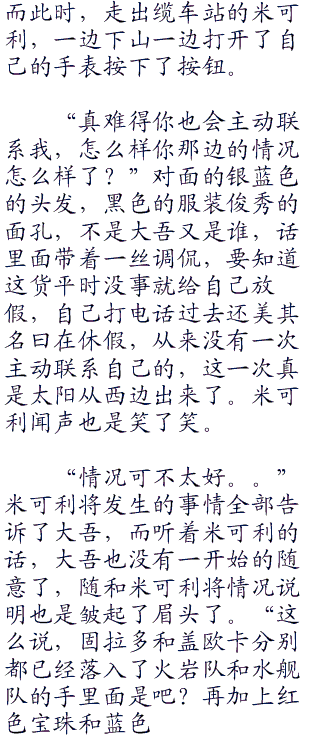 而此时，走出缆车站的米可
利，一边下山一边打开了自
己的手表按下了按钮。
“真难得你也会主动联
系我，怎么样你那边的情况
怎么样了？”对面的银蓝色
的头发，黑色的服装俊秀的
面孔，不是大吾又是谁，话
里面带着一丝调侃，要知道
这货平时没事就给自己放
假，自己打电话过去还美其
名曰在休假，从来没有一次
主动联系自己的，这一次真
是太阳从西边出来了。米可
利闻声也是笑了笑。
“情况可不太好。。”
米可利将发生的事情全部告
诉了大吾，而听着米可利的
话，大吾也没有一开始的随
意了，随和米可利将情况说
明也是皱起了眉头了。“这
么说，固拉多和盖欧卡分别
都已经落入了火岩队和水舰
队的手里面是吧？再加上红
色宝珠和蓝色